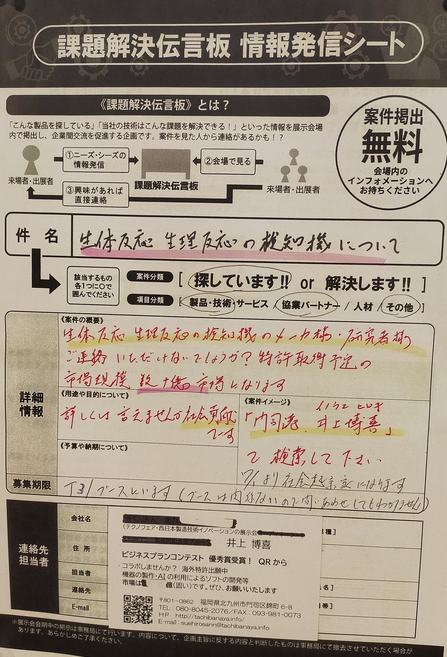 課題解決伝言板 情報発信シート
《課題解決伝言板》とは？
「こんな製品を探している」「当社の技術はこんな課題を解決できる！」といった情報を展示会場
内で掲出し、企業間交流を促進する企画です。案件を見た人から連絡があるかも！？
①ニーズ・シーズの
情報発信
②会場で見る
来場者・出展者
課題解決伝言板
来場者・出展者
③興味があれば
直接連絡
案件掲出
無料
会場内の
インフォメーションへ
お持ちください
件 名
生体反応 生理反応の検知機について
該当するもの
各1つに○で
囲んでください
案件分類
[ 探しています!! or 解決します!! ]
項目分類
[ 製品・技術・サービス / 協業パートナー / 人材 / その他 ]
詳細
情報
〈案件の概要〉
生体反応 生理反応の検知機のメーカ様・研究者様
ご連絡 いただけないでしょうか？特許取得予定の
市場規模 数十億市場となります
〈用途や目的について〉
詳しくは言えませんが社会貢献
です
〈案件イメージ〉
「門司港 井上博喜」
で検索して下さい
〈予算や納期について〉
募集期限
連絡先
担当者
会社名
住 所
担当者
連絡先
E-mail
(テクノフェア・西日本製造技術イノベーションの展示会
井上 博喜
ビジネスプランコンテスト 優秀賞受賞！ QRから
コラボしませんか？ 海外特許出願中
機器の製作・AIの利用によるソフトの開発等
〒801-0862 福岡県北九州市門司区錦町6-8
TEL：080-8045-2076／FAX：093-981-0073
HP：http://tachibanaya.info/
E-mail：suehirosarin@tachibanaya.info
※展示会会期中の掲示は事務局にて行います。内容について、企画主旨に反する内容と判断したものは事務局にて撤去させていただく場合が
あります。あらかじめご了承ください。